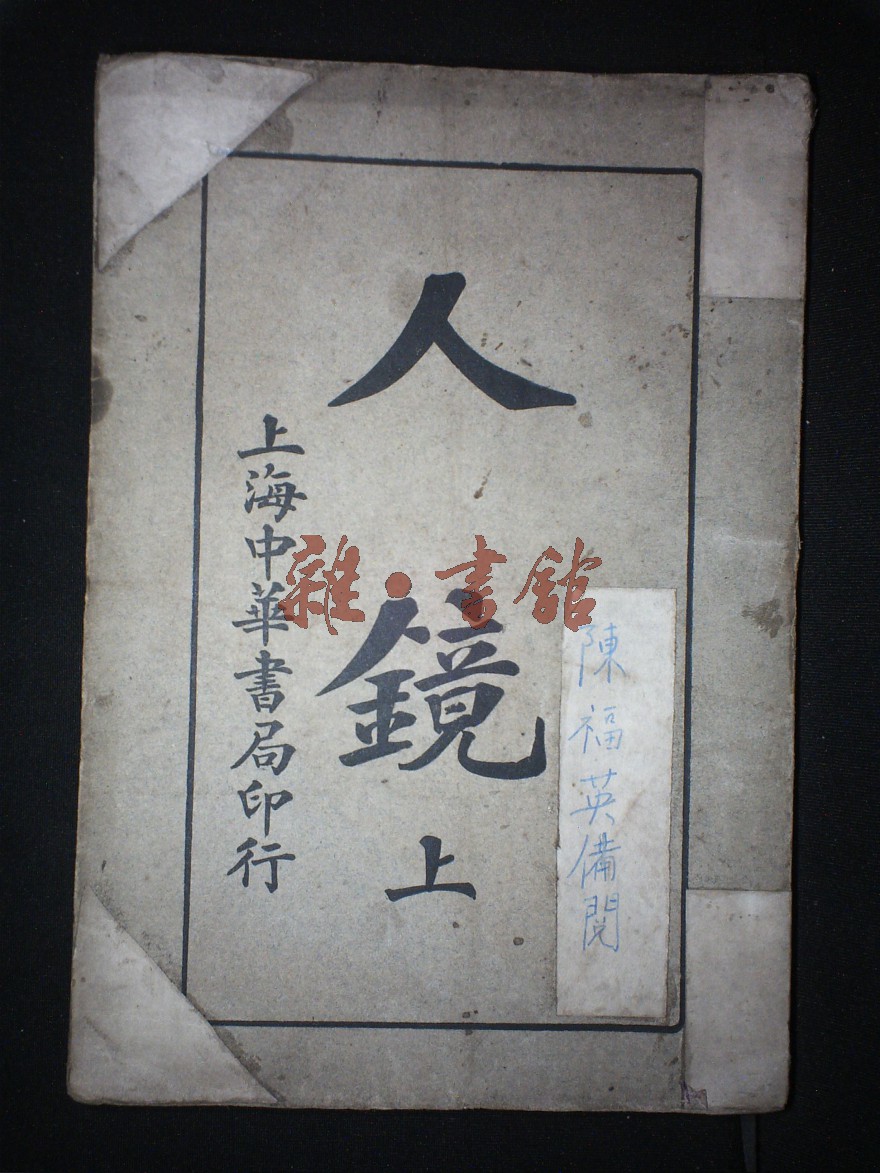 陳福英備閱
人鏡
上
上海中華書局印行
雜·書館